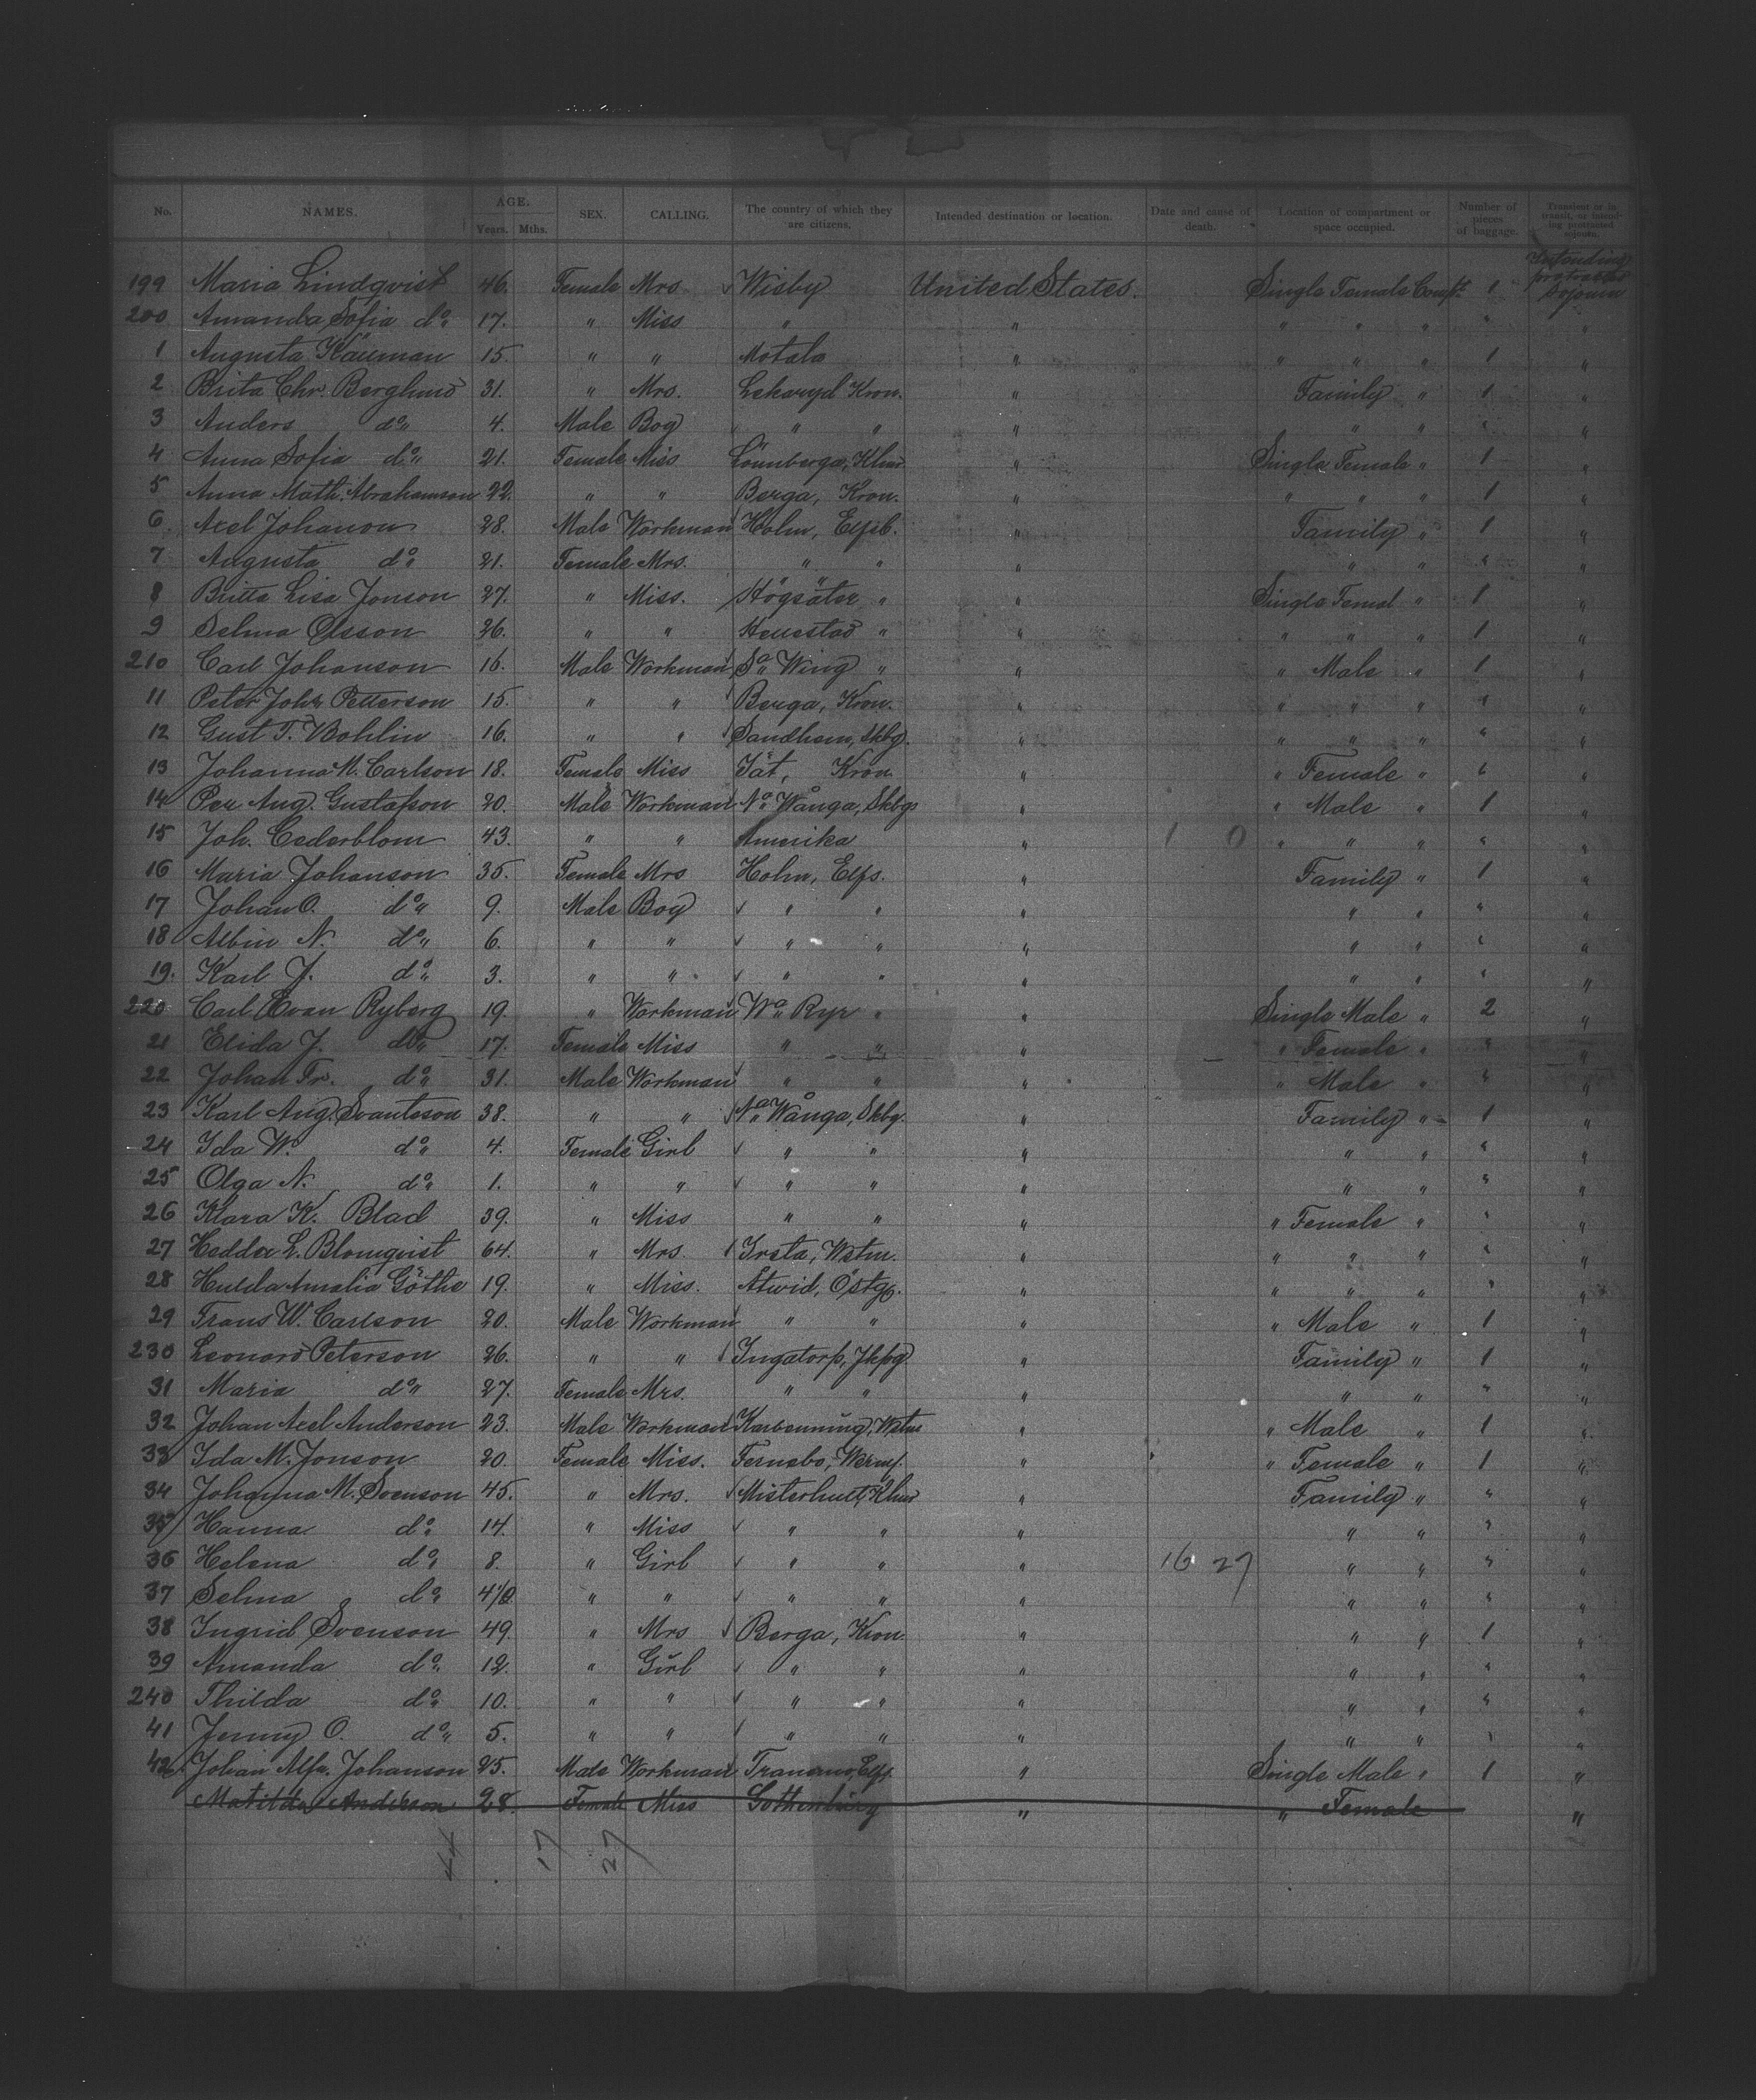 No. NAMES. AGE. Years. Mths. SEX. CALLING. The country of which they are citizens. Intended destination or location. Date and cause of death. Location of compartment or space occupied. Number of pieces of baggage. Transient or in transit, or intending protracted sojourn.
199 Maria Lindqvist 46. Female Mrs Wisby United States. Single Female Compt. 1 Intending protracted Sojourn
200 Amanda Sofia do 17. " Miss " " " " " " "
1 Augusta Käuman 15. " " Motala " " " " 1 "
2 Brita Chr. Berglund 31. " Mrs. Lekaryd Kron. " Family " 1 "
3 Anders do 4. Male Boy " " " " " " "
4 Anna Sofia do 21. Female Miss Lönneberga, Klmr " Single Female " 1 "
5 Anna Math. Abrahamson 22. " " Berga, Kron. " " " " 1 "
6. Axel Johanson 28. Male Workman Holm, Elfsb. " Family " 1 "
7 Augusta do 21. Female Mrs. " " " " " " "
8 Britta Lisa Jonson 27. " Miss. Högsäter " " Single Femal " 1 "
9 Selma Olsson 26. " " Hellestad " " " " " 1 "
210 Carl Johanson 16. Male Workman Sa Wing " " " Male " 1 "
11 Peter Johr Petterson 15. " " Berga, Kron. " " " " " "
12 Gust T. Bohlin 16. " " Sandhem, Skbg. " " " " " "
13 Johanna M. Carlson 18. Female Miss Jät, Kron " " Female " " "
14 Per Aug. Gustafson 20. Male Workman Na Wånga, Skbgs " " Male " 1 "
15 Joh. Cederblom 43. " " Amerika " 1 0 " " " " "
16 Maria Johanson 35. Female Mrs Holm, Elfs. " Family " 1 "
17 Johan O. do 9. Male Boy " " " " " " "
18 Albin N. do 6. " " " " " " " " "
19. Karl J. do 3. " " " " " " " " "
220 Carl Evan Ryberg 19. " Workman Wa Ryr " " Single Male " 2 "
21 Elida J. do 17. Female Miss " " " " Female " " "
22 Johan Fr. do 31. Male Workman " " " " Male " " "
23 Karl Aug. Svanteson 38. " " Na Wånga, Skbg. " Family " 1 "
24 Ida W. do 4. Female Girl " " " " " " "
25 Olga N. do 1. " " " " " " " " "
26 Klara K. Blad 39. " Miss " " " " Female " " "
27 Hedda L. Blomqvist 64. " Mrs. Irsta, Wstm. " " " " " "
28 Hulda Amalia Göthe 19. " Miss. Åtwid, Östg. " " " " " "
29 Frans W. Carlson 20. Male Workman " " " " Male " 1 "
230 Leonard Peterson 26. " " Ingatorp, Jkpg. " Family " 1 "
31 Maria do 27. Female Mrs. " " " " " " "
32 Johan Axel Anderson 23. Male Workman Karbenning, Wstm " " Male " 1 "
33 Ida M. Jonson 20. Female Miss. Fernebo, Werml. " " Female " 1 "
34 Johanna M. Svenson 45. " Mrs. Misterhult, Klmr " Family " " "
35 Hanna do 14. " Miss " " " " " " "
36 Helena do 8. " Girl " " " 16 27 " " " "
37 Selma do 4 " " " " " " " " "
38 Ingrid Svenson 49. " Mrs Berga, Kron. " " " 1 "
39 Amanda do 12. " Girl " " " " " " "
240 Thilda do 10. " " " " " " " " "
41 Jenny O. do 5. " " " " " " " " "
42 Johan Alfr. Johanson 25. Male Workman Tranemo, Elfs. " Single Male " 1 "
Matilda Anderson 28. Female Miss Gothenburg " " Female "
44 17 27